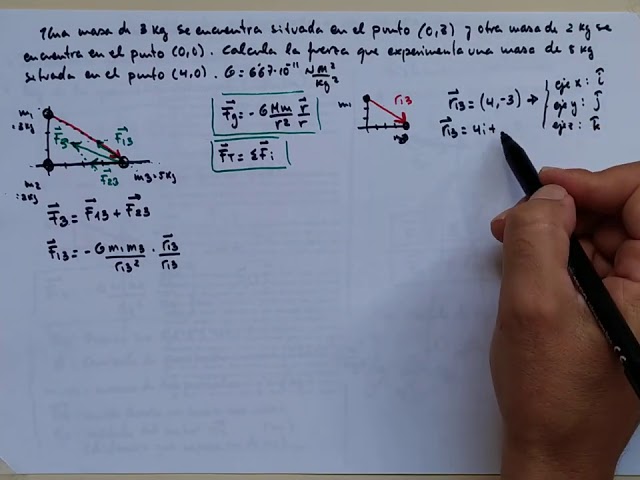 Una masa de 3 kg se encuentra situada en el punto (0,3) y otra masa de 2 kg se
encuentra en el punto (0,0). Calcula la fuerza que experimenta una masa de 5 kg
situada en el punto (4,0). G = 6'67·10⁻¹¹ Nm²/kg²
m₁
:3kg
F₃
F₁₃
F₂₃
m₂
:2kg
m₃=5kg
F⃗g = -G Mm/r² r⃗/r
F⃗T = ΣF⃗i
F⃗₃ = F⃗₁₃ + F⃗₂₃
F⃗₁₃ = -G m₁m₃/r₁₃² · r⃗₁₃/r₁₃
m₁
r₁₃
m₃
r⃗₁₃ = (4,-3) →
eje x: i
eje y: j
eje z: k
r⃗₁₃ = 4i+